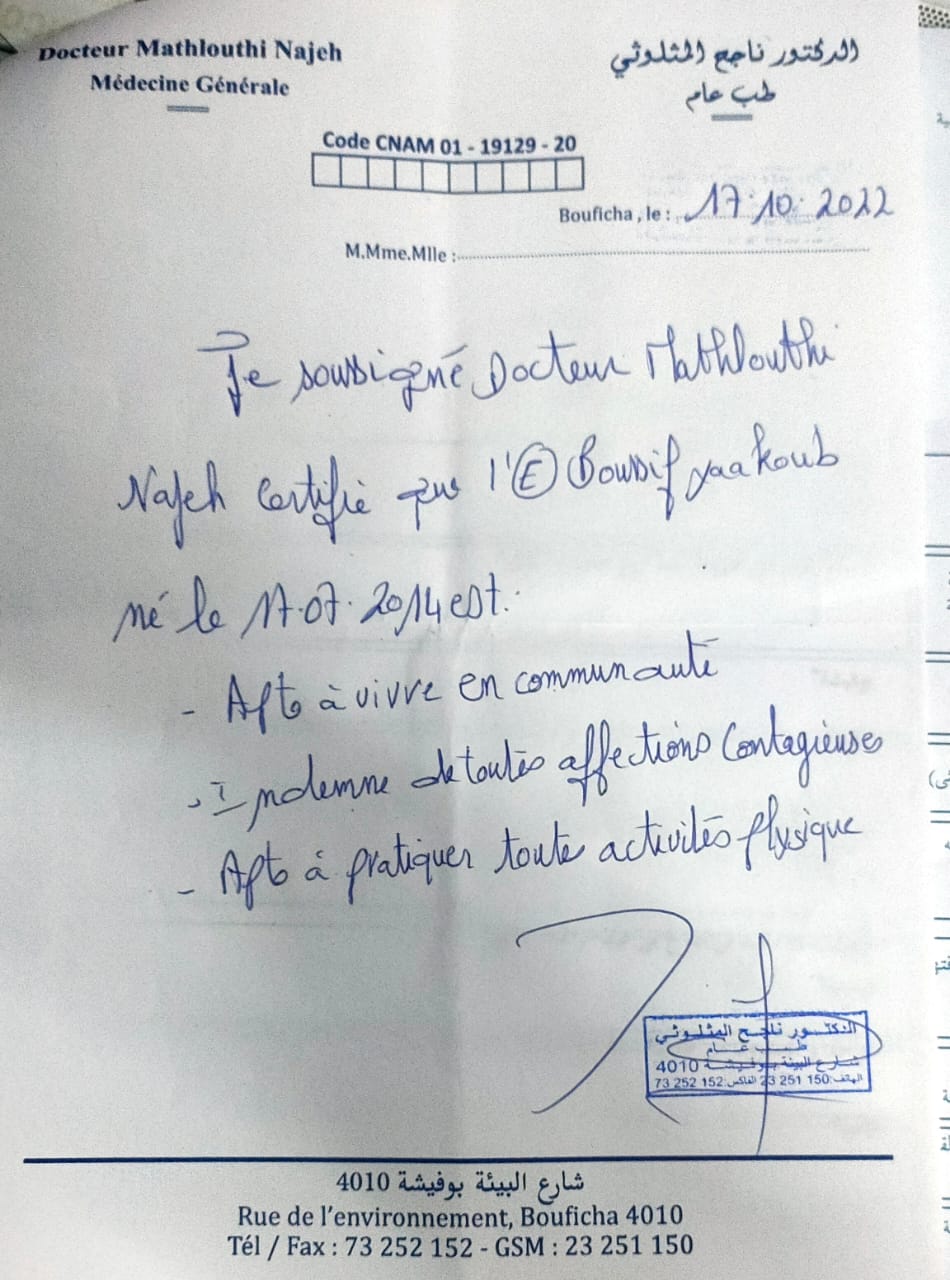 Docteur Mathlouthi Najeh
Médecine Générale
الدكتور ناجح المثلوثي
طب عام
Code CNAM 01 - 19129 - 20
Bouficha , le : 17.10.2022
M.Mme.Mlle :
Je soussigné Docteur Mathlouthi
Najeh Certifie que l'E Boussif yaakoub
né le 17.07.2014 est.
- Apte à vivre en communauté
- Indemne de toutes affections Contagieuses
- Apte à pratiquer toute activités physique
الدكتور ناجح المثلوثي
طب عام
شارع البيئة بوفيشة 4010
الهاتف: 23 251 150 الفاكس: 73 252 152
شارع البيئة بوفيشة 4010
Rue de l'environnement, Bouficha 4010
Tél / Fax : 73 252 152 - GSM : 23 251 150